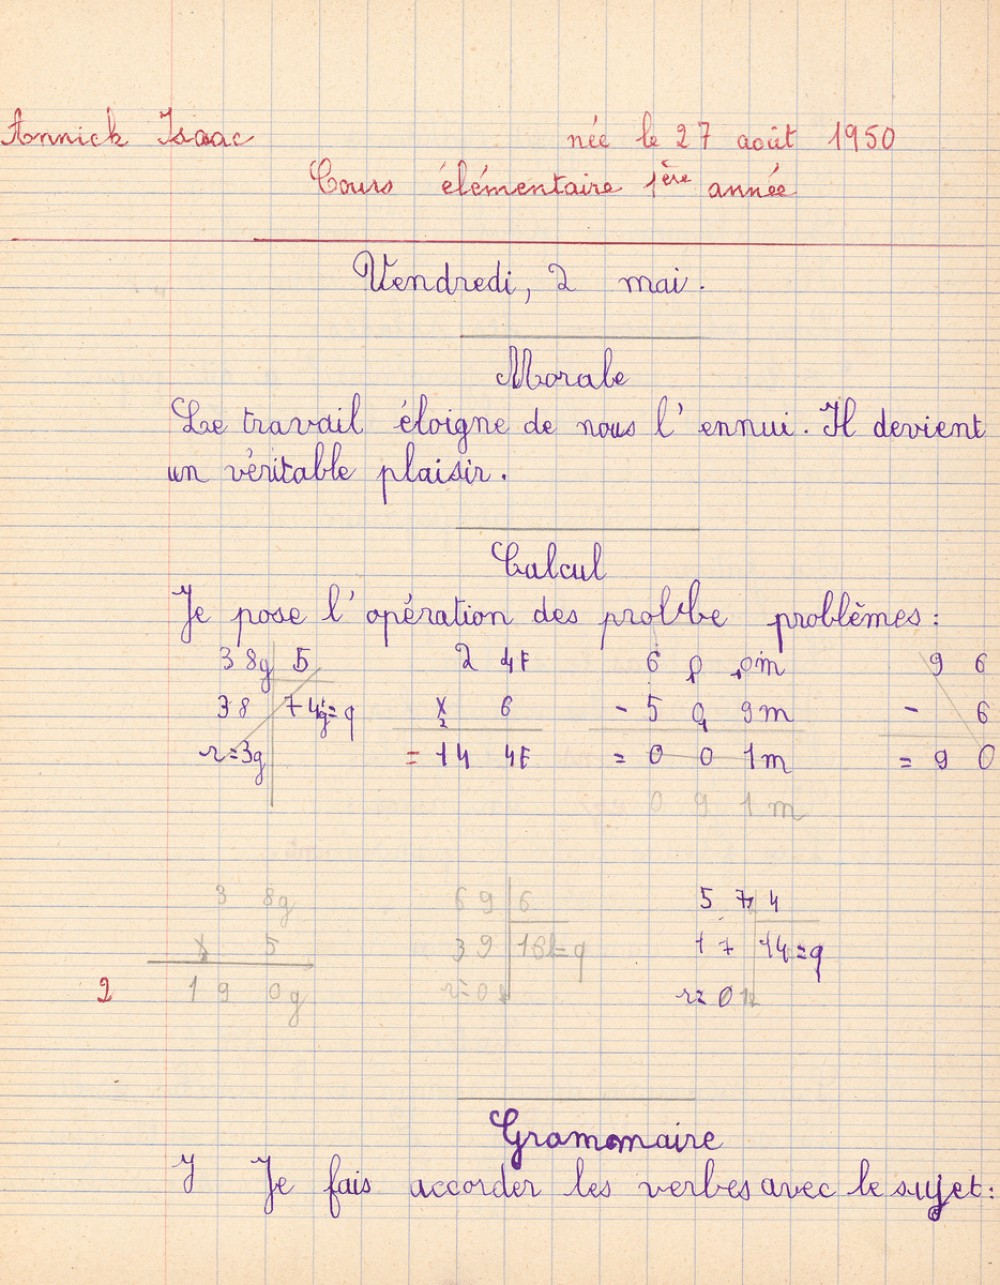 Annick Isaac née le 27 août 1950
Cours élémentaire 1ère année
Vendredi, 2 mai.
Morale
Le travail éloigne de nous l'ennui. Il devient
un véritable plaisir.
Calcul
Je pose l'opération des prolbe problèmes:
38g 5 2 4F 6 0 0m 9 6
38 7 x 6 - 5 0 9m - 6
r=3g = 14 4F = 0 0 1m = 9 0
0 9 1m
3 8g 69 6 5 7 4
x 5 39 1 7 14=q
2 1 9 0g r=0 r=01
Grammaire
Je fais accorder les verbes avec le sujet: